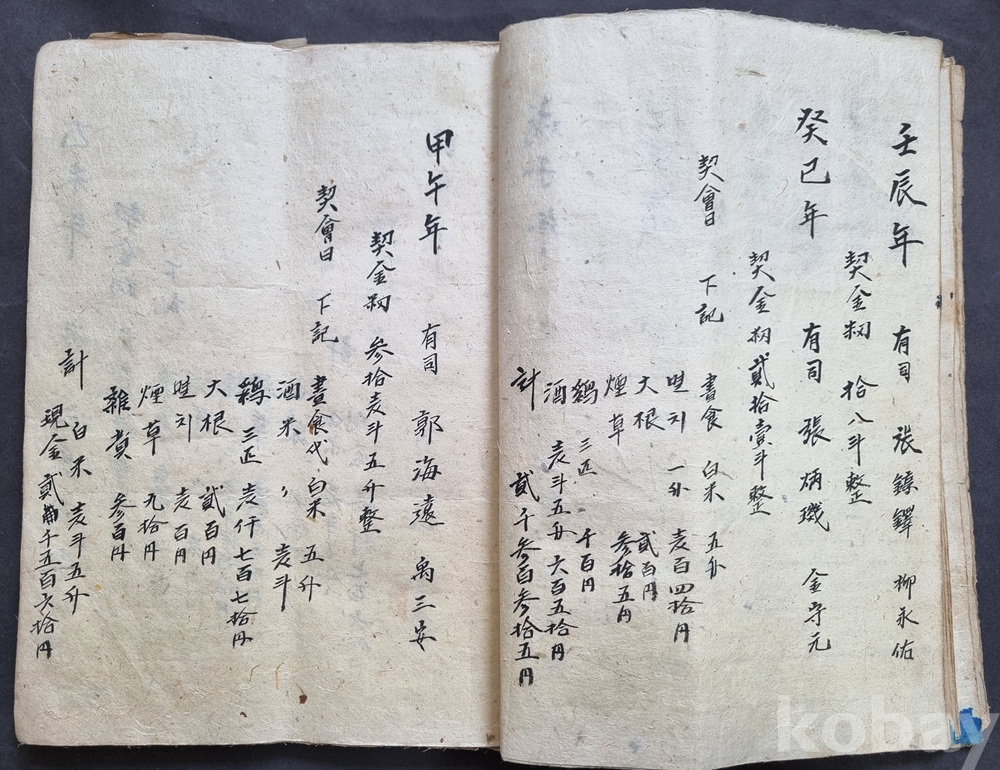 壬辰年 有司 張鎬鐸 柳永佑
契金籾 拾八斗整
癸巳年 有司 張炳璣 金守元
契金籾 貳拾壹斗整
契會日 下記 晝食 白米 五升
멸치 一升 壱百四拾円
大根 貳百円
煙草 参拾五円
鷄 三匹 千百円
酒 壱斗五升 六百五拾円
計 貳千参百参拾五円
甲午年 有司 郭海遠 禹三安
契金籾 参拾壱斗五升整
契會日 下記 晝食代 白米 五升
酒米 〃 壱斗
鷄 三匹 壱仟七百七拾円
大根 貳百円
멸치 壱百円
煙草 九拾円
雜費 参百円
計 白米 壱斗五升
現金貳千五百六拾円
kobay